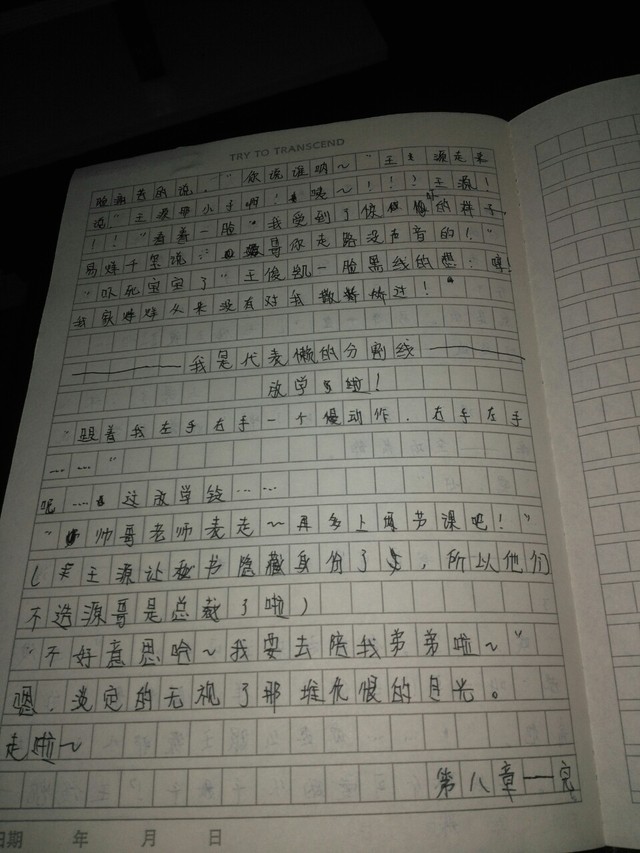 TRY TO TRANSCEND
去的说，"你说谁呐～"王源走来
说"王源甲小子啊！噢～！！？王源！
！！"看着一脸"我受到了惊的样子，
易烊千玺说："你走路没声音的！"
"吓死宝宝了"王俊凯一脸黑线的想：
我家烊烊从来没有对我撒娇过！"
我是代表懒的分割线
放学啦！
"跟着我左手右手一个慢动作．右手左手
……"
呃……这放学铃……
"帅哥老师表走～再多上节课吧！"
（王源让秘书隐藏身份了，所以他们
不造源哥是总裁了啦）
"不好意思哈～我要去陪我弟弟啦～"
嗯．淡定的无视了那堆仇恨的目光。
走啦～
第八章一完
日期 年 月 日